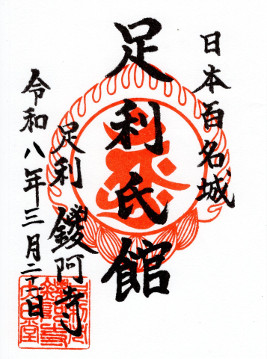 日本百名城
足利氏館
足利 鑁阿寺
令和八年三月二十二日